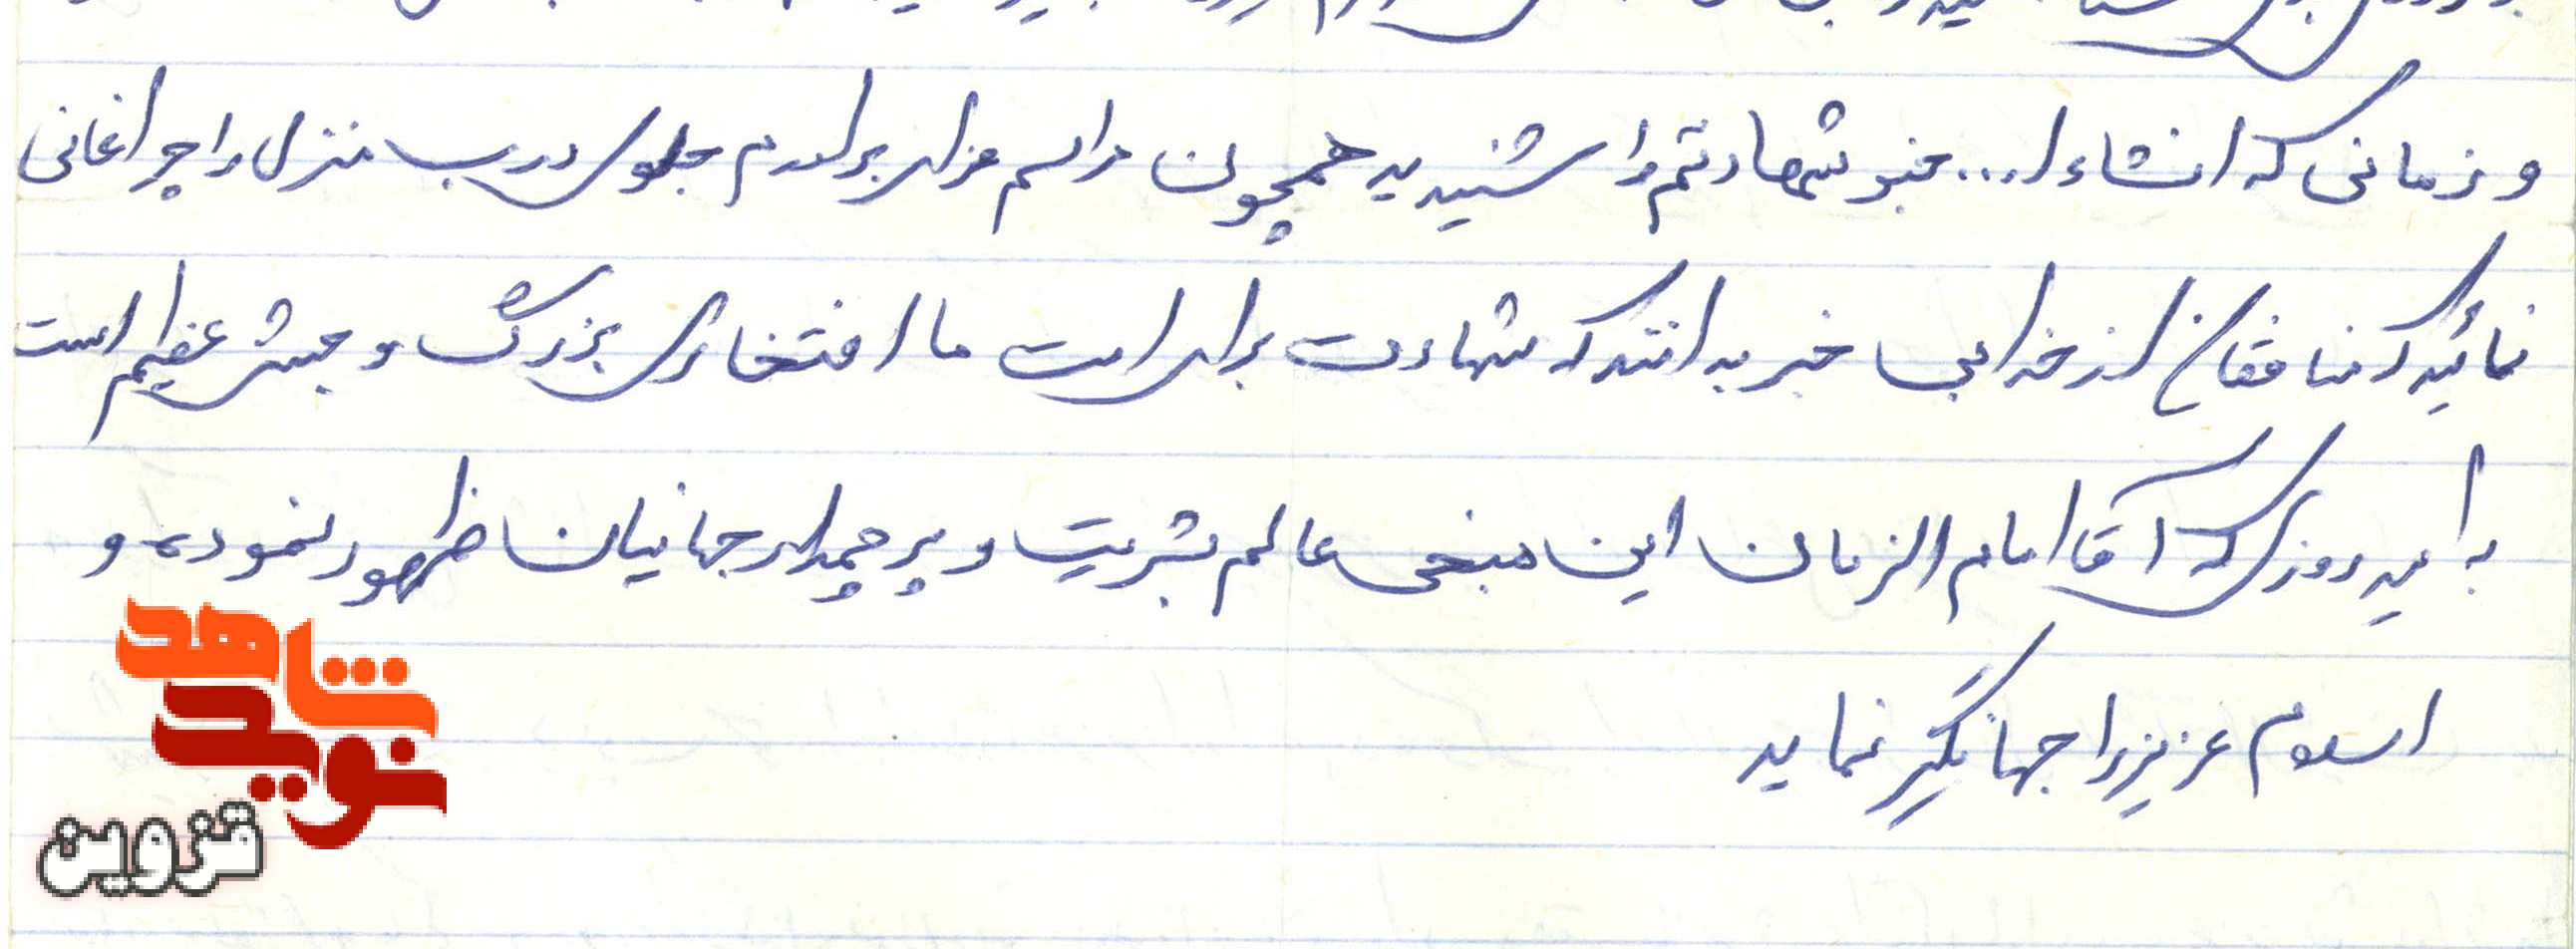 و زمانی که انشاء ا... خبر شهادتم را شنیدید همچون مراسم عزای برادرم جلوی درب منزل را چراغانی
نمائید که منافقان از خدا بی خبر بدانند که شهادت برای امت ما افتخاری بزرگ و جشنی عظیم است
به امید روزی که آقا امام الزمان این منجی عالم بشریت و پرچمدار جهانیان ظهور نموده و
اسلام عزیز را جهانگیر نماید
شاهد
نوید
قزوین